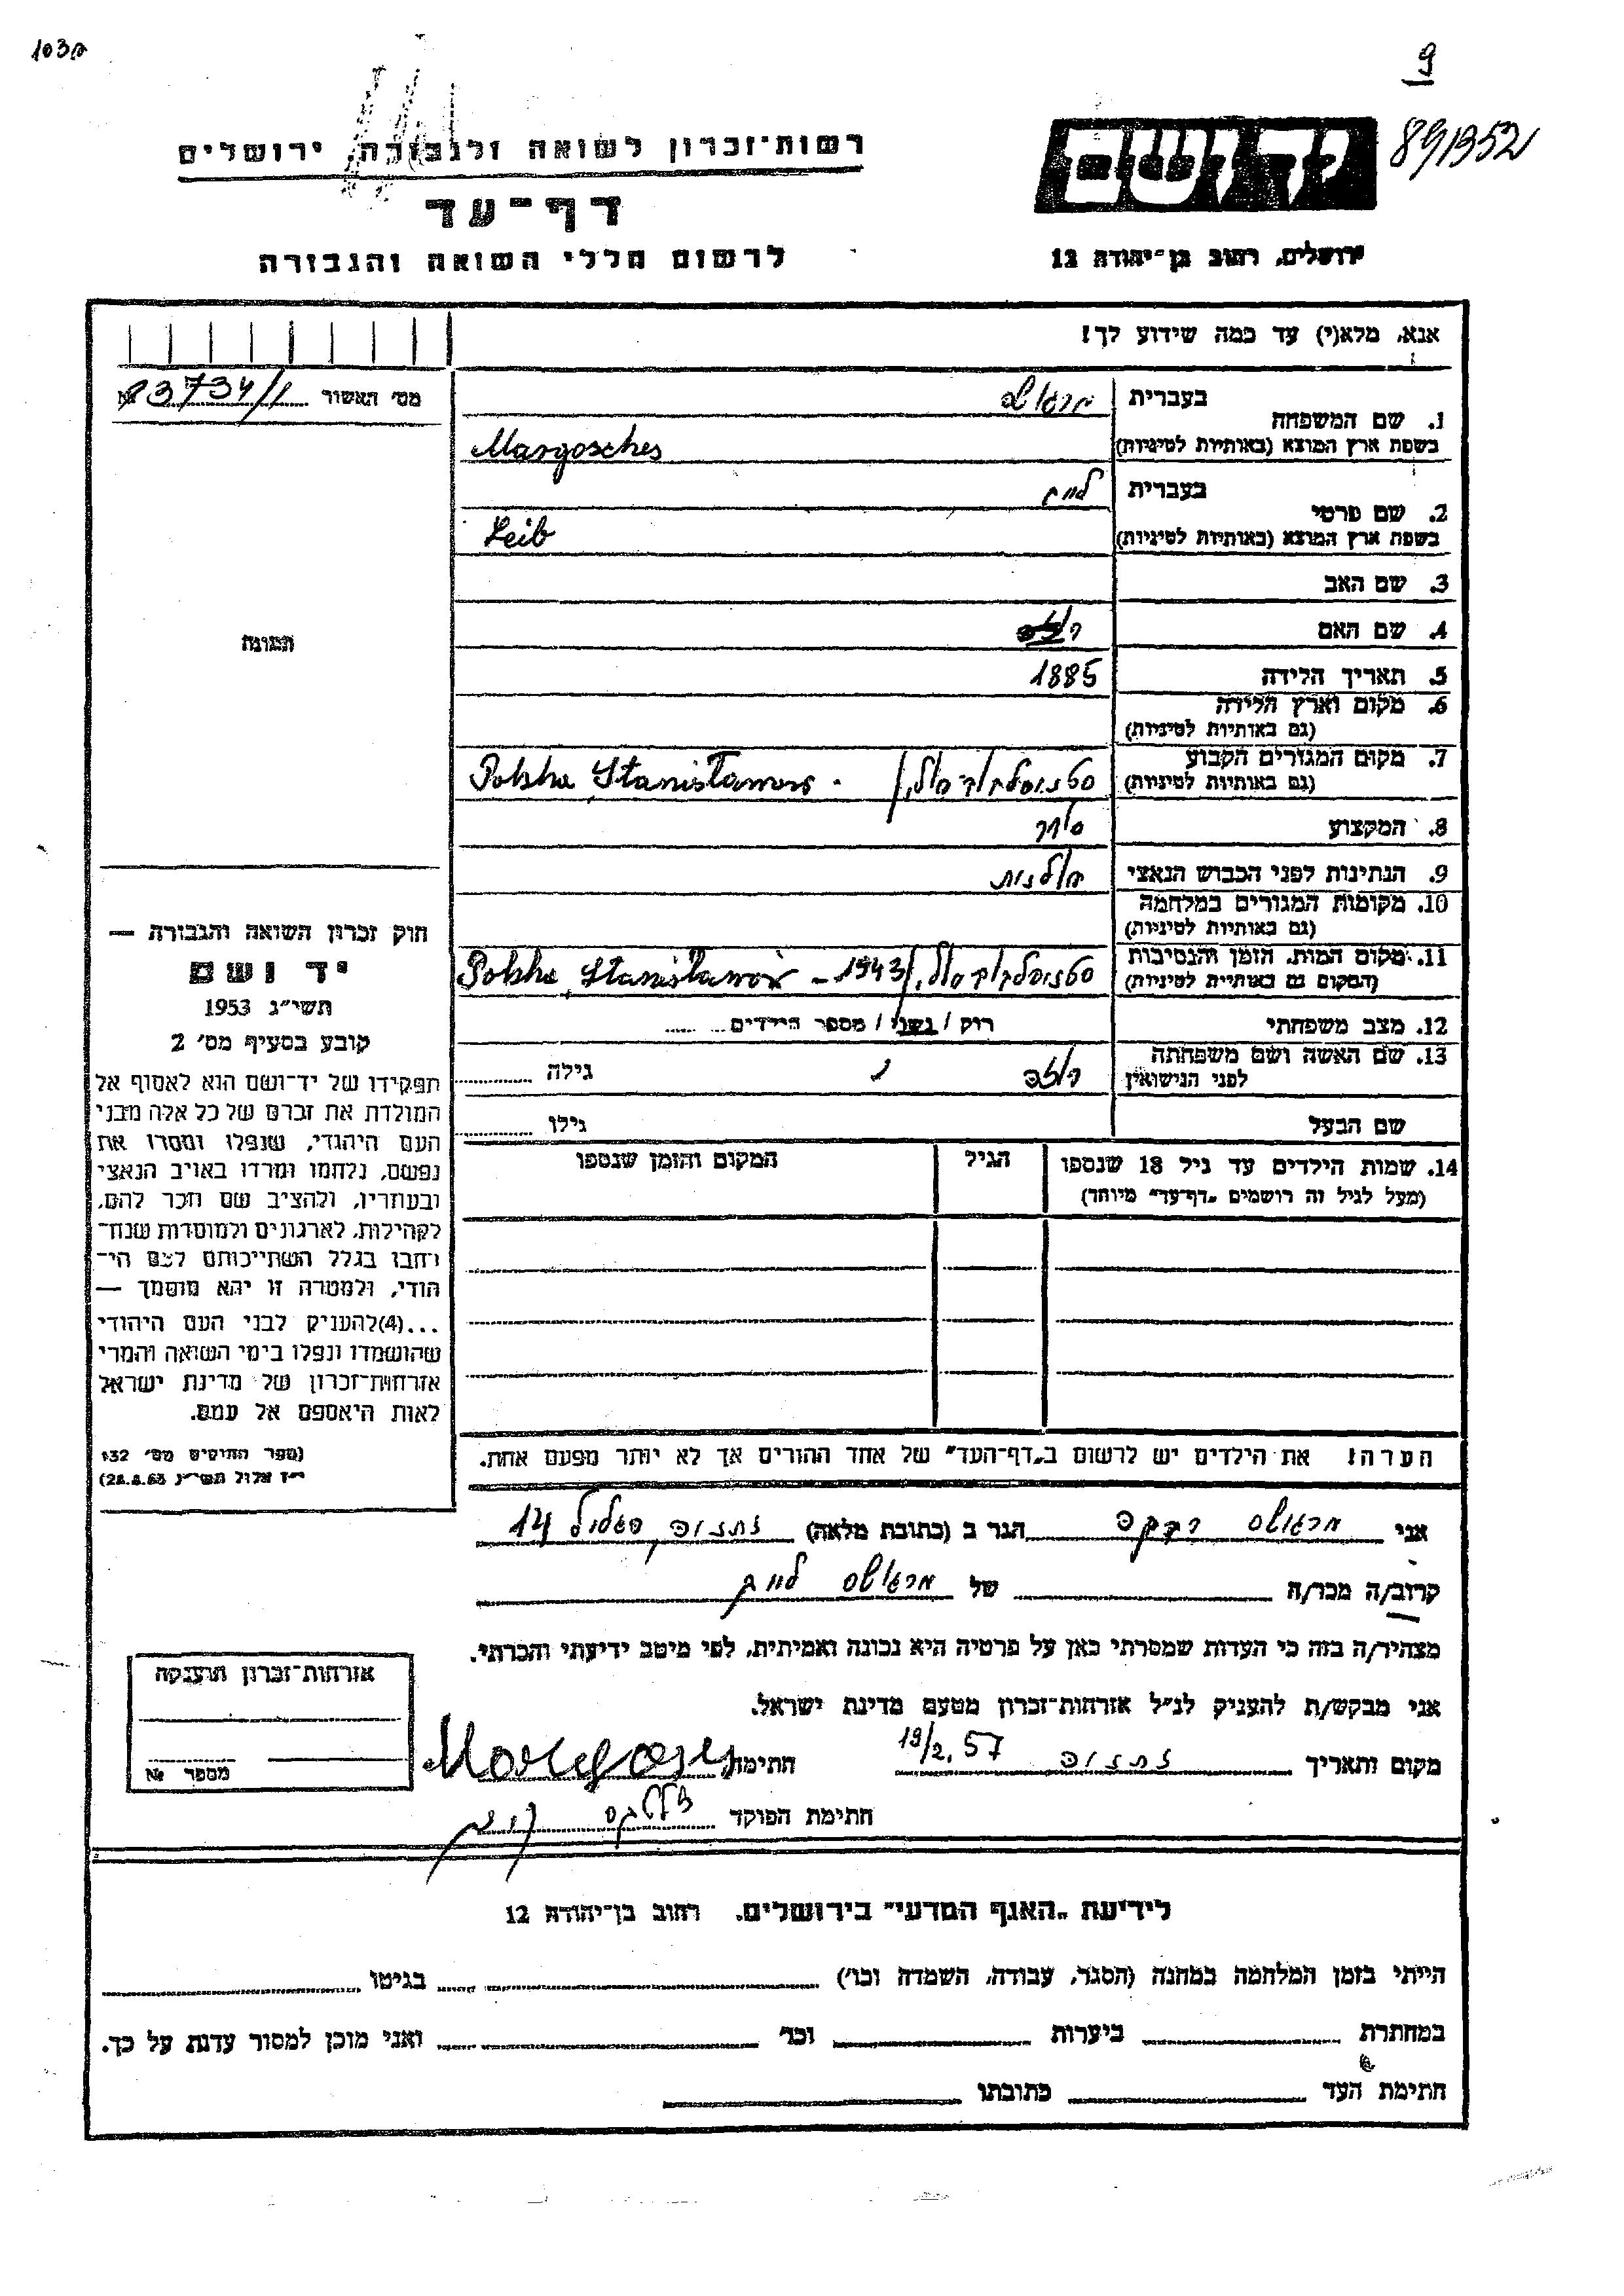 103מ
9
891352
רשות־זכרון לשואה ולגבורה, ירושלים
ידושם
דף־עד
לרשום חללי השואה והגבורה
ירושלים, רחוב בן־יהודה 12
אנא, מלא(י) עד כמה שידוע לך!
מס׳ האשור 3734/1
בעברית
1. שם המשפחה
בשפת ארץ המוצא (באותיות לטיניות) Margosches
בעברית לייב
2. שם פרטי
בשפת ארץ המוצא (באותיות לטיניות) Leib
3. שם האב
תמונה
4. שם האם
5. תאריך הלידה 1885
6. מקום וארץ הלידה
(גם באותיות לטיניות)
7. מקום המגורים הקבוע
(גם באותיות לטיניות) סטניסלבוב פולין / Polska Stanisławow
8. המקצוע סוחר
9. הנתינות לפני הכבוש הנאצי פולנית
10. מקומות המגורים במלחמה
(גם באותיות לטיניות)
11. מקום המות, הזמן והנסיבות
(המקום גם באותיות לטיניות) סטניסלבוב פולין / 1943 - Polska Stanisławow
12. מצב משפחתי רוק / נשוי / מספר הילדים
13. שם האשה ושם משפחתה
לפני הנישואין גילה
שם הבעל גילו
14. שמות הילדים עד גיל 18 שנספו הגיל המקום והזמן שנספו
(מעל לגיל זה רושמים „דף־עד” מיוחד)
הערה! את הילדים יש לרשום ב„דף־העד” של אחד ההורים אך לא יותר מפעם אחת.
חוק זכרון השואה והגבורה —
יד ושם
תשי״ג 1953
קובע בסעיף מס׳ 2
תפקידו של יד־ושם הוא לאסוף אל
המולדת את זכרם של כל אלה מבני
העם היהודי, שנפלו ומסרו את
נפשם, נלחמו ומרדו באויב הנאצי
ובעוזריו, ולהציב שם וזכר להם,
לקהילות, לארגונים ולמוסדות שנח־
רבו בגלל השתייכותם לעם הי־
הודי, ולמטרה זו יהא מוסמך —
...(4)להעניק לבני העם היהודי
שהושמדו ונפלו בימי השואה והמרי
אזרחות־זכרון של מדינת ישראל
לאות היאספם אל עמם.
(ספר החוקים מס׳ 132
י״ז אלול תשי״ג 28.8.53)
אני מרגושס רבקה הגר ב (כתובת מלאה) נתניה הגליל 14
קרוב/ה מכר/ה של מרגושס לייב
מצהיר/ה בזה כי העדות שמסרתי כאן על פרטיה היא נכונה ואמיתית, לפי מיטב ידיעתי והכרתי.
אני מבקש/ת להעניק לנ״ל אזרחות־זכרון מטעם מדינת ישראל.
מקום ותאריך נתניה 19/2.57 חתימת
חתימת הפוקד
אזרחות־זכרון הוענקה
מספר №
לידיעת „האגף המדעי” בירושלים, רחוב בן־יהודה 12
הייתי בזמן המלחמה במחנה (הסגר, עבודה, השמדה וכו׳) בגיטו
במחתרת ביערות וכו׳ ואני מוכן למסור עדות על כך.
חתימת העד כתובתו